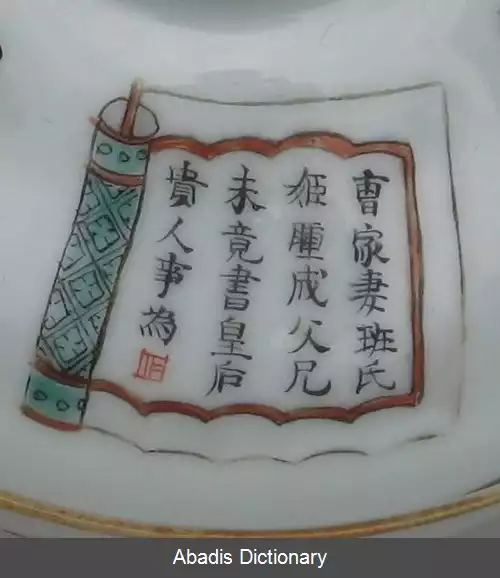 曹家妻班氏
姬踵成父兄
未竟書皇后
貴人事為
Abadis Dictionary